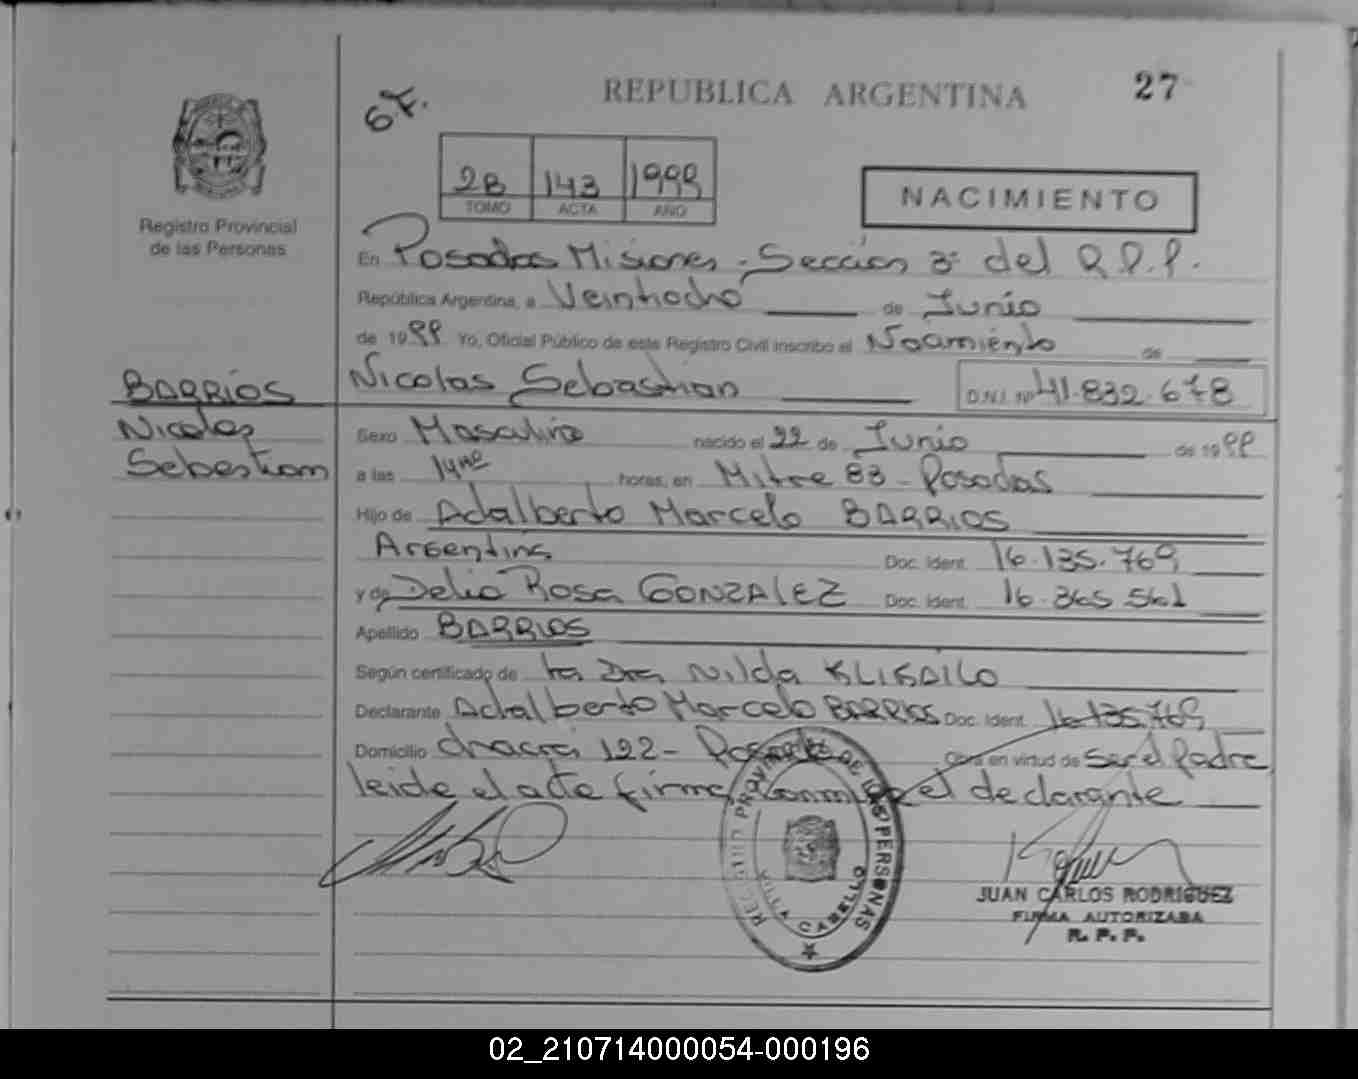 REPUBLICA ARGENTINA
27
6F.
2B 143 1999
TOMO ACTA AÑO
NACIMIENTO
Registro Provincial
de las Personas
En Posadas Misiones - Sección 3ª del R.P.P.
República Argentina, a Veintiocho de Junio
de 1999 Yo, Oficial Público de este Registro Civil inscribo el Nacimiento de
Nicolas Sebastian D.N.I. Nº 41.832.678
BARRIOS
Nicolas
Sebastian
Sexo Masculino nacido el 22 de Junio de 1999
a las horas, en Mitre 83 - Posadas
Hijo de Adalberto Marcelo BARRIOS
Argentina Doc. Ident. 16.135.769
y de Delia Rosa GONZALEZ Doc. Ident. 16.365.561
Apellido BARRIOS
Según certificado de la Dra Nilda
Declarante Adalberto Marcelo BARRIOS Doc. Ident. 16.135.769
Domicilio chacra 122 - Posadas Obra en virtud de ser el Padre
leida el acta firma conmigo el declarante
REGISTRO PROVINCIAL DE LAS PERSONAS
VILLA CABELLO
JUAN CARLOS RODRIGUEZ
FIRMA AUTORIZADA
R. P. P.
02_210714000054-000196